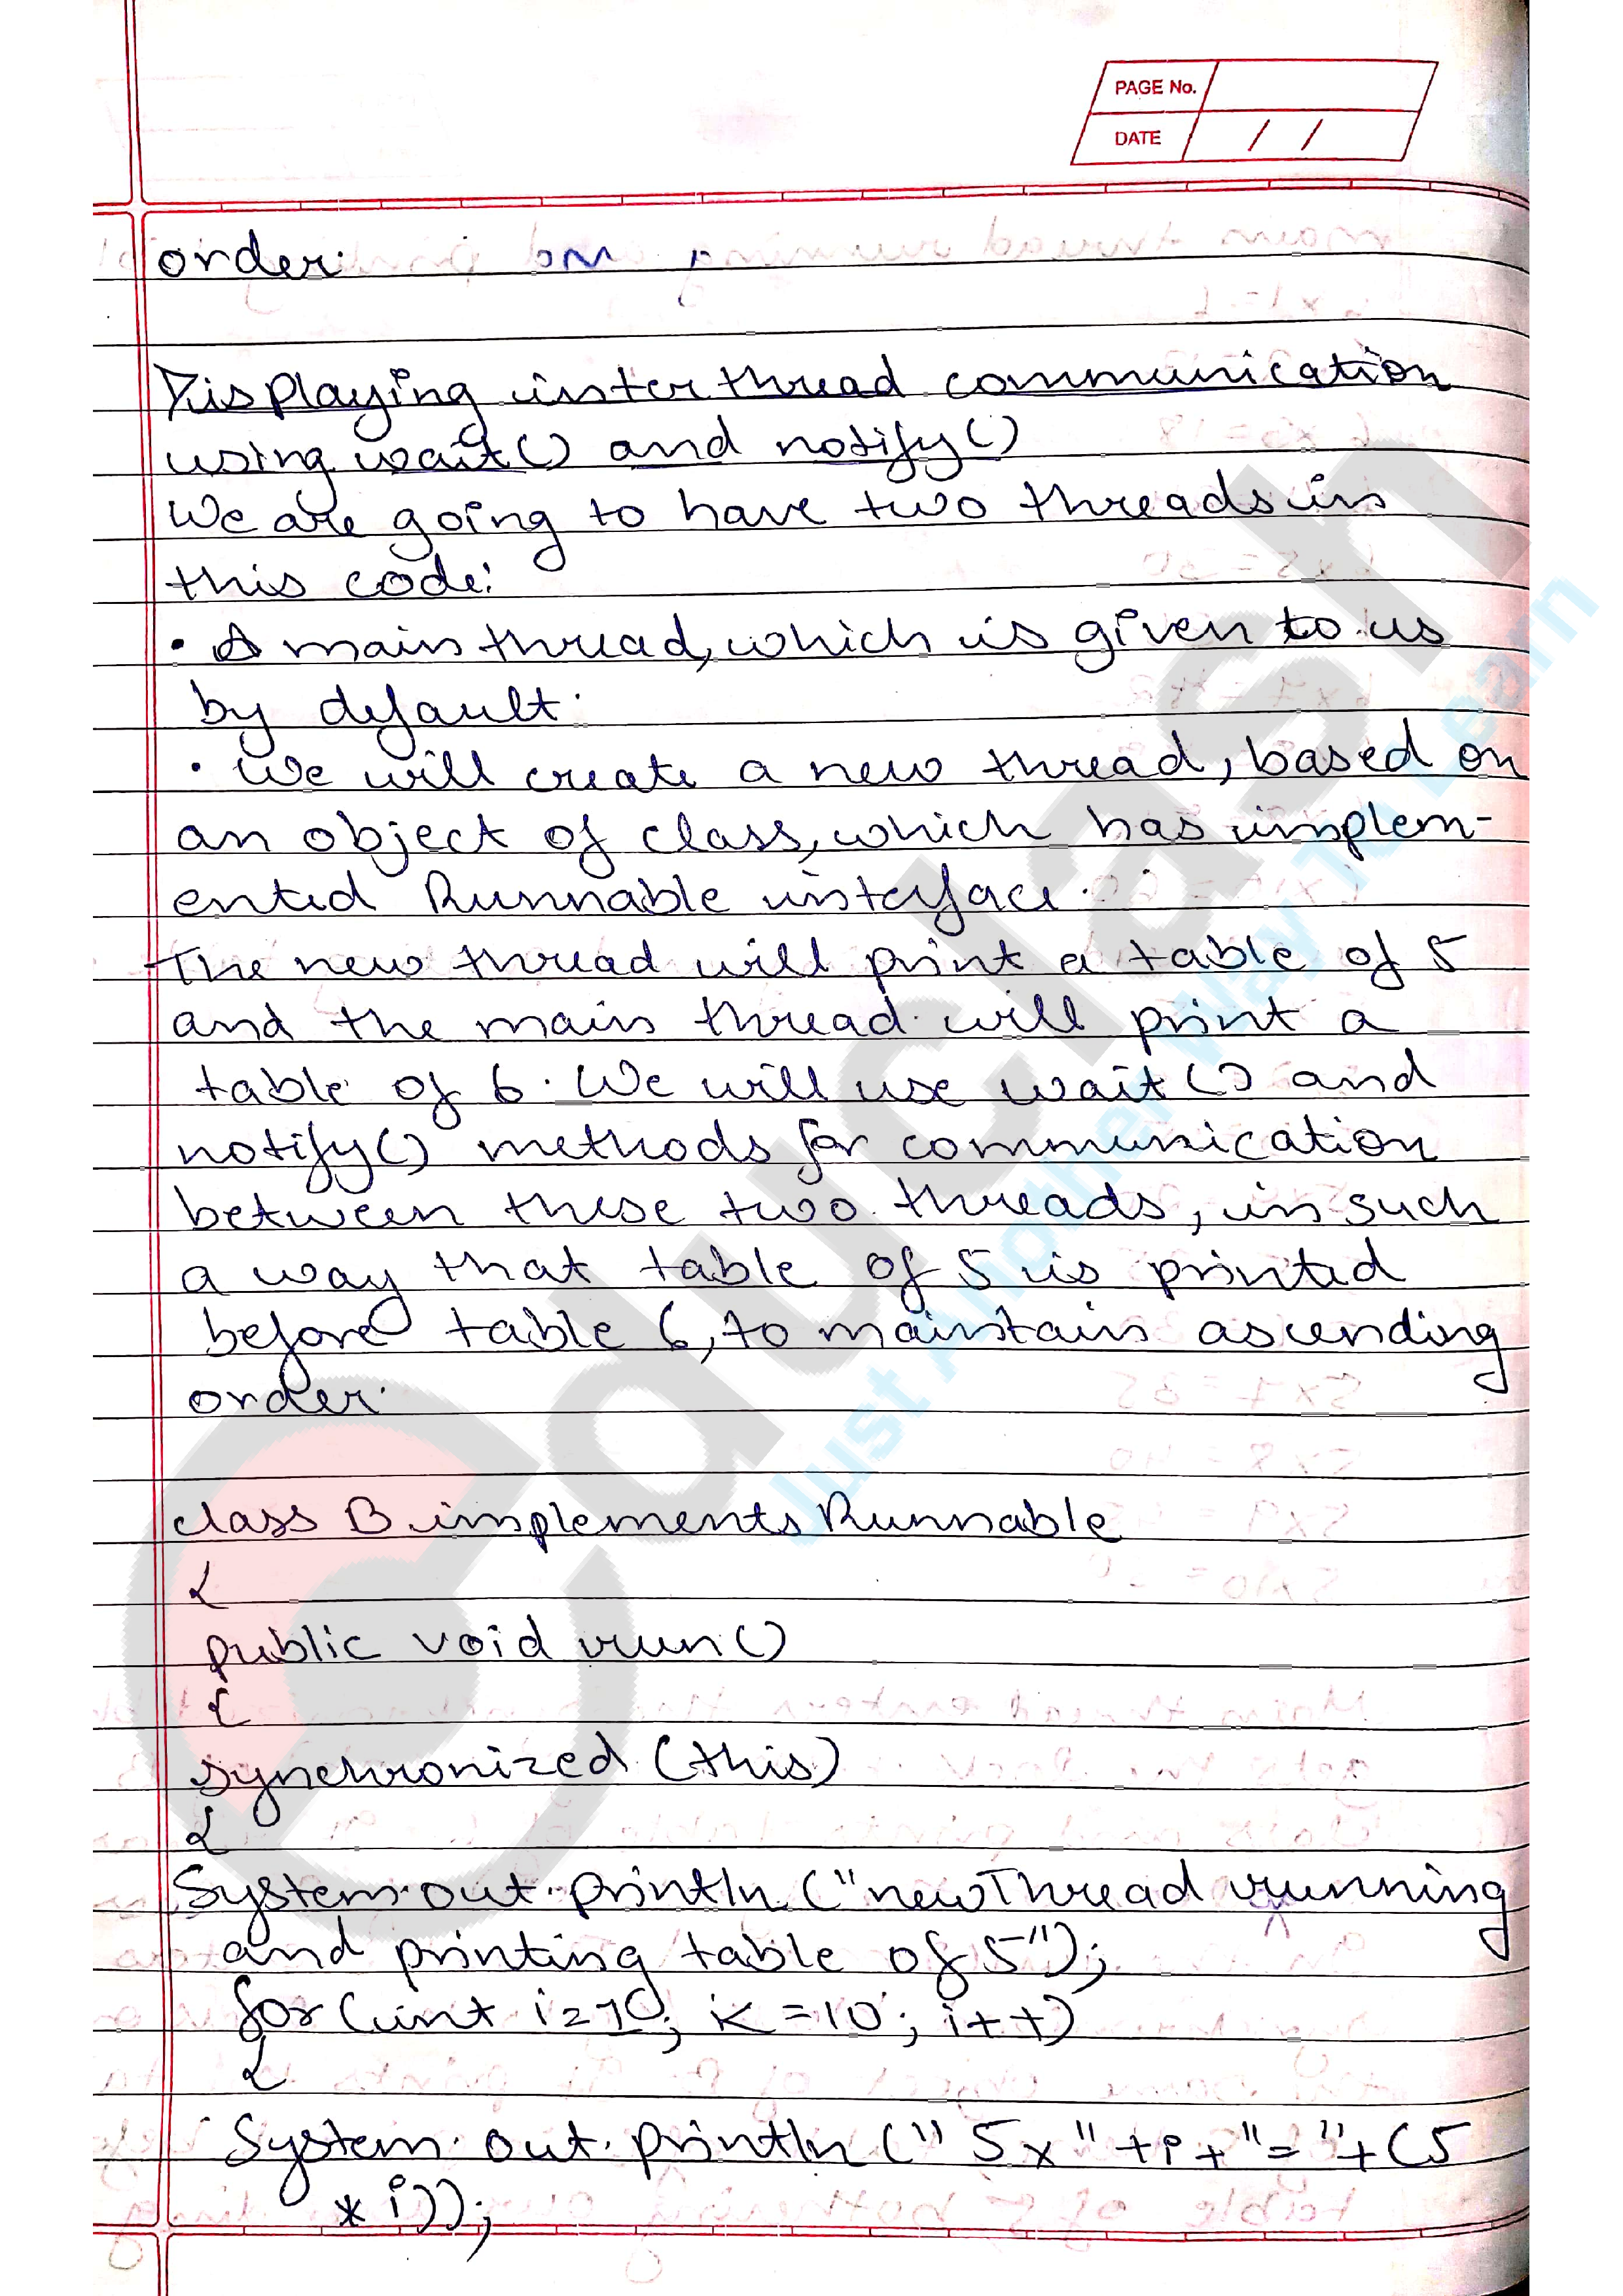 PAGE No.
DATE / /
order.
Displaying interthread communication
using wait() and notify()
We are going to have two threads in
this code:
• A main thread, which is given to us
by default.
• We will create a new thread, based on
an object of class, which has implem-
ented Runnable interface.
The new thread will print a table of 5
and the main thread will print a
table of 6. We will use wait() and
notify() methods for communication
between these two threads, in such
a way that table of 5 is printed
before table 6, to maintain ascending
order.
class B implements Runnable
{
public void run()
{
synchronized (this)
{
System.out.println("newThread running
and printing table of 5");
for(int i=10; i<=10; i++)
{
System.out.println(" 5x"+i+"="+(5
*i));
educlash
Just Another Way To Learn